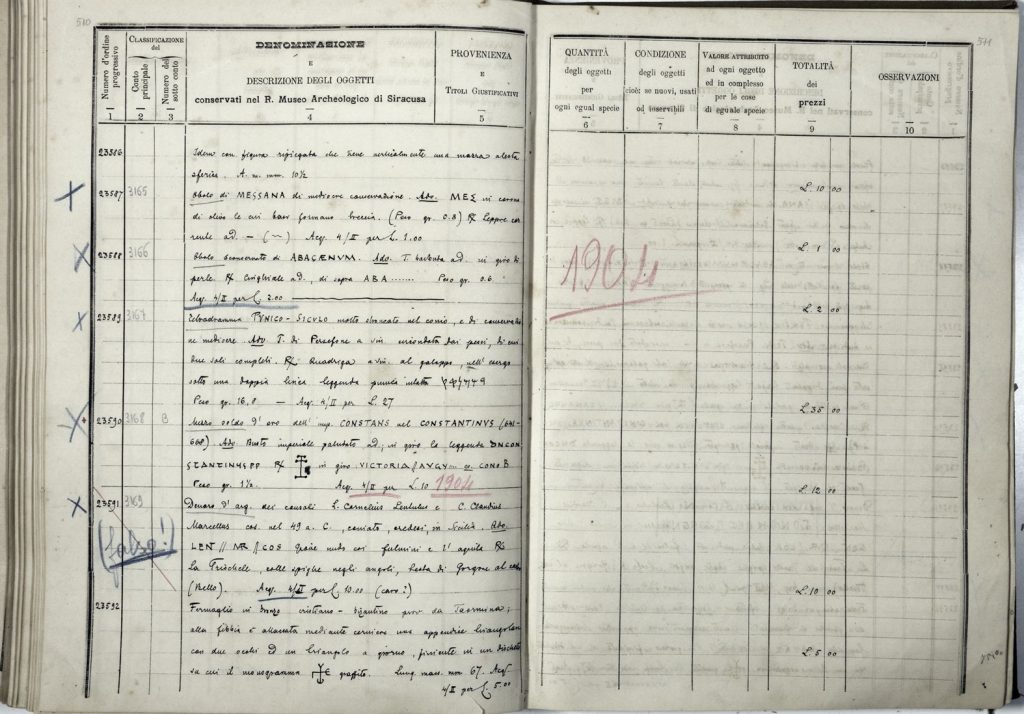 510
Numero d'ordine progressivo
CLASSIFICAZIONE del
Conto principale
Numero del sotto conto
DENOMINAZIONE
E
DESCRIZIONE DEGLI OGGETTI
conservati nel R. Museo Archeologico di Siracusa
PROVENIENZA
E
TITOLI GIUSTIFICATIVI
1 2 3 4 5
23586 Idem con figura ripiegata che tiene verticalmente una mazza
sferica. A. m. mm. 10½
23587 3165 Obolo di MESSANA di mediocre conservazione. Adv. ΜΕΣ in corona
di olivo le cui (Peso gr. 0.8) R/ Leppre cor
rente ad. – Acq. 4/II per L. 1.00
23588 3166 Obolo sconservato di ABACÆNVM. Adv. T. barbuta ad. in giro di
perle. R/ Cinghiale ad., di sopra ABA ....... Peso gr. 0.6
Acq. 4/II per L. 2.00
23589 3167 Tetradramma PVNICO-SICVLO molto nel conio, e di conservazio
ne mediocre. Adv T. di Persefone a sin. circondata dai pesci, di cui
due soli completi. R/ Quadriga a sin. al galoppo, nell'esergo
sotto una doppia linea leggenda punica
Peso gr. 16,8 – Acq. 4/II per L. 27
23590 3168 B Mezzo soldo d'oro dell'imp. CONSTANS nel CONSTANTINVS (641-
668) Adv. Busto imperiale paludato ad; in giro la leggenda DNCON
STANTINUSPP R/ in giro VICTORIA/AVGV CONOB
Peso gr. 1½ Acq. 4/II per L. 10 1904
23591 3169 Denaro d'arg. dei consoli L. Cornelius Lentulus e C. Claudius
(falso!)
Marcellus cos. nel 49 a. C., coniato, credesi, in Sicilia. Adv.
LEN // MAR // COS Giove nudo coi fulmini e l'aquila R/
La Trischele, colle spighe negli angoli, testa di Gorgone al
(Bello). Acq. 4/II per L. 10.00 (caro?)
23592 Fermaglio in bronzo cristiano-bizantino prov. da Taormina;
alla fibbia è attaccata mediante cerniera una appendice triangolare
con due occhi ed un triangolo a giorno, finiente in un dischetto
su cui il monogramma graffito. Lung. mass. mm 67. Acq
4/II per L. 5.00
511
QUANTITÀ
degli oggetti
per
ogni egual specie
CONDIZIONE
degli oggetti
cioè: se nuovi, usati
od inservibili
VALORE ATTRIBUITO
ad ogni oggetto
ed in complesso
per le cose
di eguale specie
TOTALITÀ
dei
prezzi
OSSERVAZIONI
6 7 8 9 10
L. 10 00
L. 1 00
1904
L. 2 00
L. 35 00
L. 12 00
L. 10 00
L. 5 00